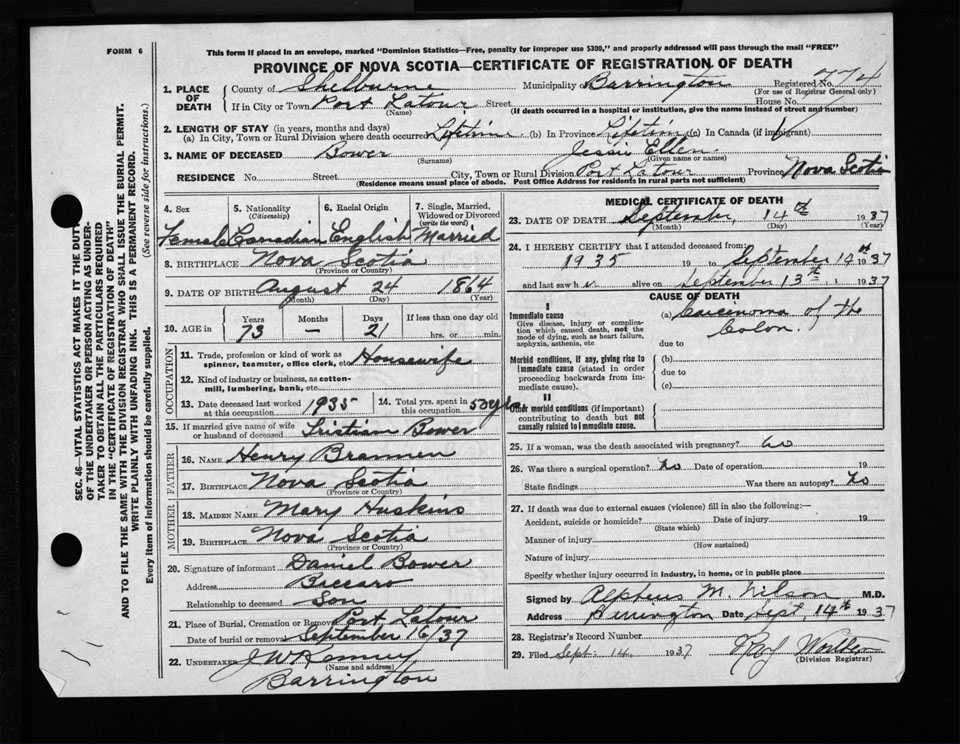 FORM 6
This form if placed in an envelope, marked "Dominion Statistics—Free, penalty for improper use $300," and properly addressed will pass through the mail "FREE"
PROVINCE OF NOVA SCOTIA—CERTIFICATE OF REGISTRATION OF DEATH
1. PLACE OF DEATH
County of Shelburne Municipality of Barrington Registered No. 774
(For use of Registrar General only)
If in City or Town Port Latour Street House No.
(Name) (If death occurred in a hospital or institution, give the name instead of street and number)
2. LENGTH OF STAY (in years, months and days)
(a) In City, Town or Rural Division where death occurred Lifetime (b) In Province Lifetime (c) In Canada (if immigrant)
3. NAME OF DECEASED Bower Jessie Ellen
(Surname) (Given name or names)
RESIDENCE No. Street City, Town or Rural Division Port Latour Province Nova Scotia
(Residence means usual place of abode. Post Office Address for residents in rural parts not sufficient)
4. Sex 5. Nationality (Citizenship) 6. Racial Origin 7. Single, Married, Widowed or Divorced (write the word)
Female Canadian English Married
8. BIRTHPLACE Nova Scotia
(Province or Country)
9. DATE OF BIRTH August 24 1864
(Month) (Day) (Year)
10. AGE in Years Months Days If less than one day old
73 — 21 hrs. or min.
OCCUPATION
11. Trade, profession or kind of work as spinner, teamster, office clerk, etc. Housewife
12. Kind of industry or business, as cotton-mill, lumbering, bank, etc.
13. Date deceased last worked at this occupation 1935 14. Total yrs. spent in this occupation 50 yrs
15. If married give name of wife or husband of deceased Bower
FATHER
16. NAME Henry Brannen
17. BIRTHPLACE Nova Scotia
(Province or Country)
MOTHER
18. MAIDEN NAME Mary Huskins
19. BIRTHPLACE Nova Scotia
(Province or Country)
20. Signature of informant Daniel Bower
Address Baccaro
Relationship to deceased Son
21. Place of Burial, Cremation or Removal Port Latour
Date of burial or removal September 16/37
22. UNDERTAKER J W Kenney
(Name and address)
Barrington
MEDICAL CERTIFICATE OF DEATH
23. DATE OF DEATH September 14th 1937
(Month) (Day) (Year)
24. I HEREBY CERTIFY that I attended deceased from:
1935 19 to September 14th 1937
and last saw her alive on September 13th 1937
CAUSE OF DEATH
I
Immediate cause
Give disease, injury or complication which caused death, not the mode of dying, such as heart failure, asphyxia, asthenia, etc.
(a) Carcinoma of the Colon.
due to
Morbid conditions, if any, giving rise to immediate cause (stated in order proceeding backwards from immediate cause).
(b)
due to
(c)
II
Other morbid conditions (if important) contributing to death but not causally related to immediate cause.
25. If a woman, was the death associated with pregnancy? no
26. Was there a surgical operation? no Date of operation 19
State findings Was there an autopsy? no
27. If death was due to external causes (violence) fill in also the following:—
Accident, suicide or homicide? Date of injury 19
(State which)
Manner of injury
(How sustained)
Nature of injury
Specify whether injury occurred in industry, in home, or in public place
Signed by Alpheus M. Wilson M.D.
Address Barrington Date Sept. 14th 1937
28. Registrar's Record Number
29. Filed Sept. 14 1937
(Division Registrar)
SEC. 46—VITAL STATISTICS ACT MAKES IT THE DUTY
OF THE UNDERTAKER OR PERSON ACTING AS UNDER-
TAKER TO OBTAIN ALL THE PARTICULARS REQUIRED
IN THE "CERTIFICATE OF REGISTRATION OF DEATH"
AND TO FILE THE SAME WITH THE DIVISION REGISTRAR WHO SHALL ISSUE THE BURIAL PERMIT.
WRITE PLAINLY WITH UNFADING INK. THIS IS A PERMANENT RECORD.
Every item of information should be carefully supplied. (See reverse side for instructions.)